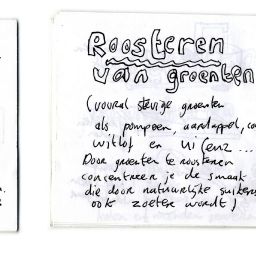 Roosteren
van groenten
(vooral stevige groenten
als pompoen, aardappel,
witlof en ui (enz...
Door groenten te roosteren
concentreer je de smaak
die door natuurlijke suikers
ook zoeter wordt)